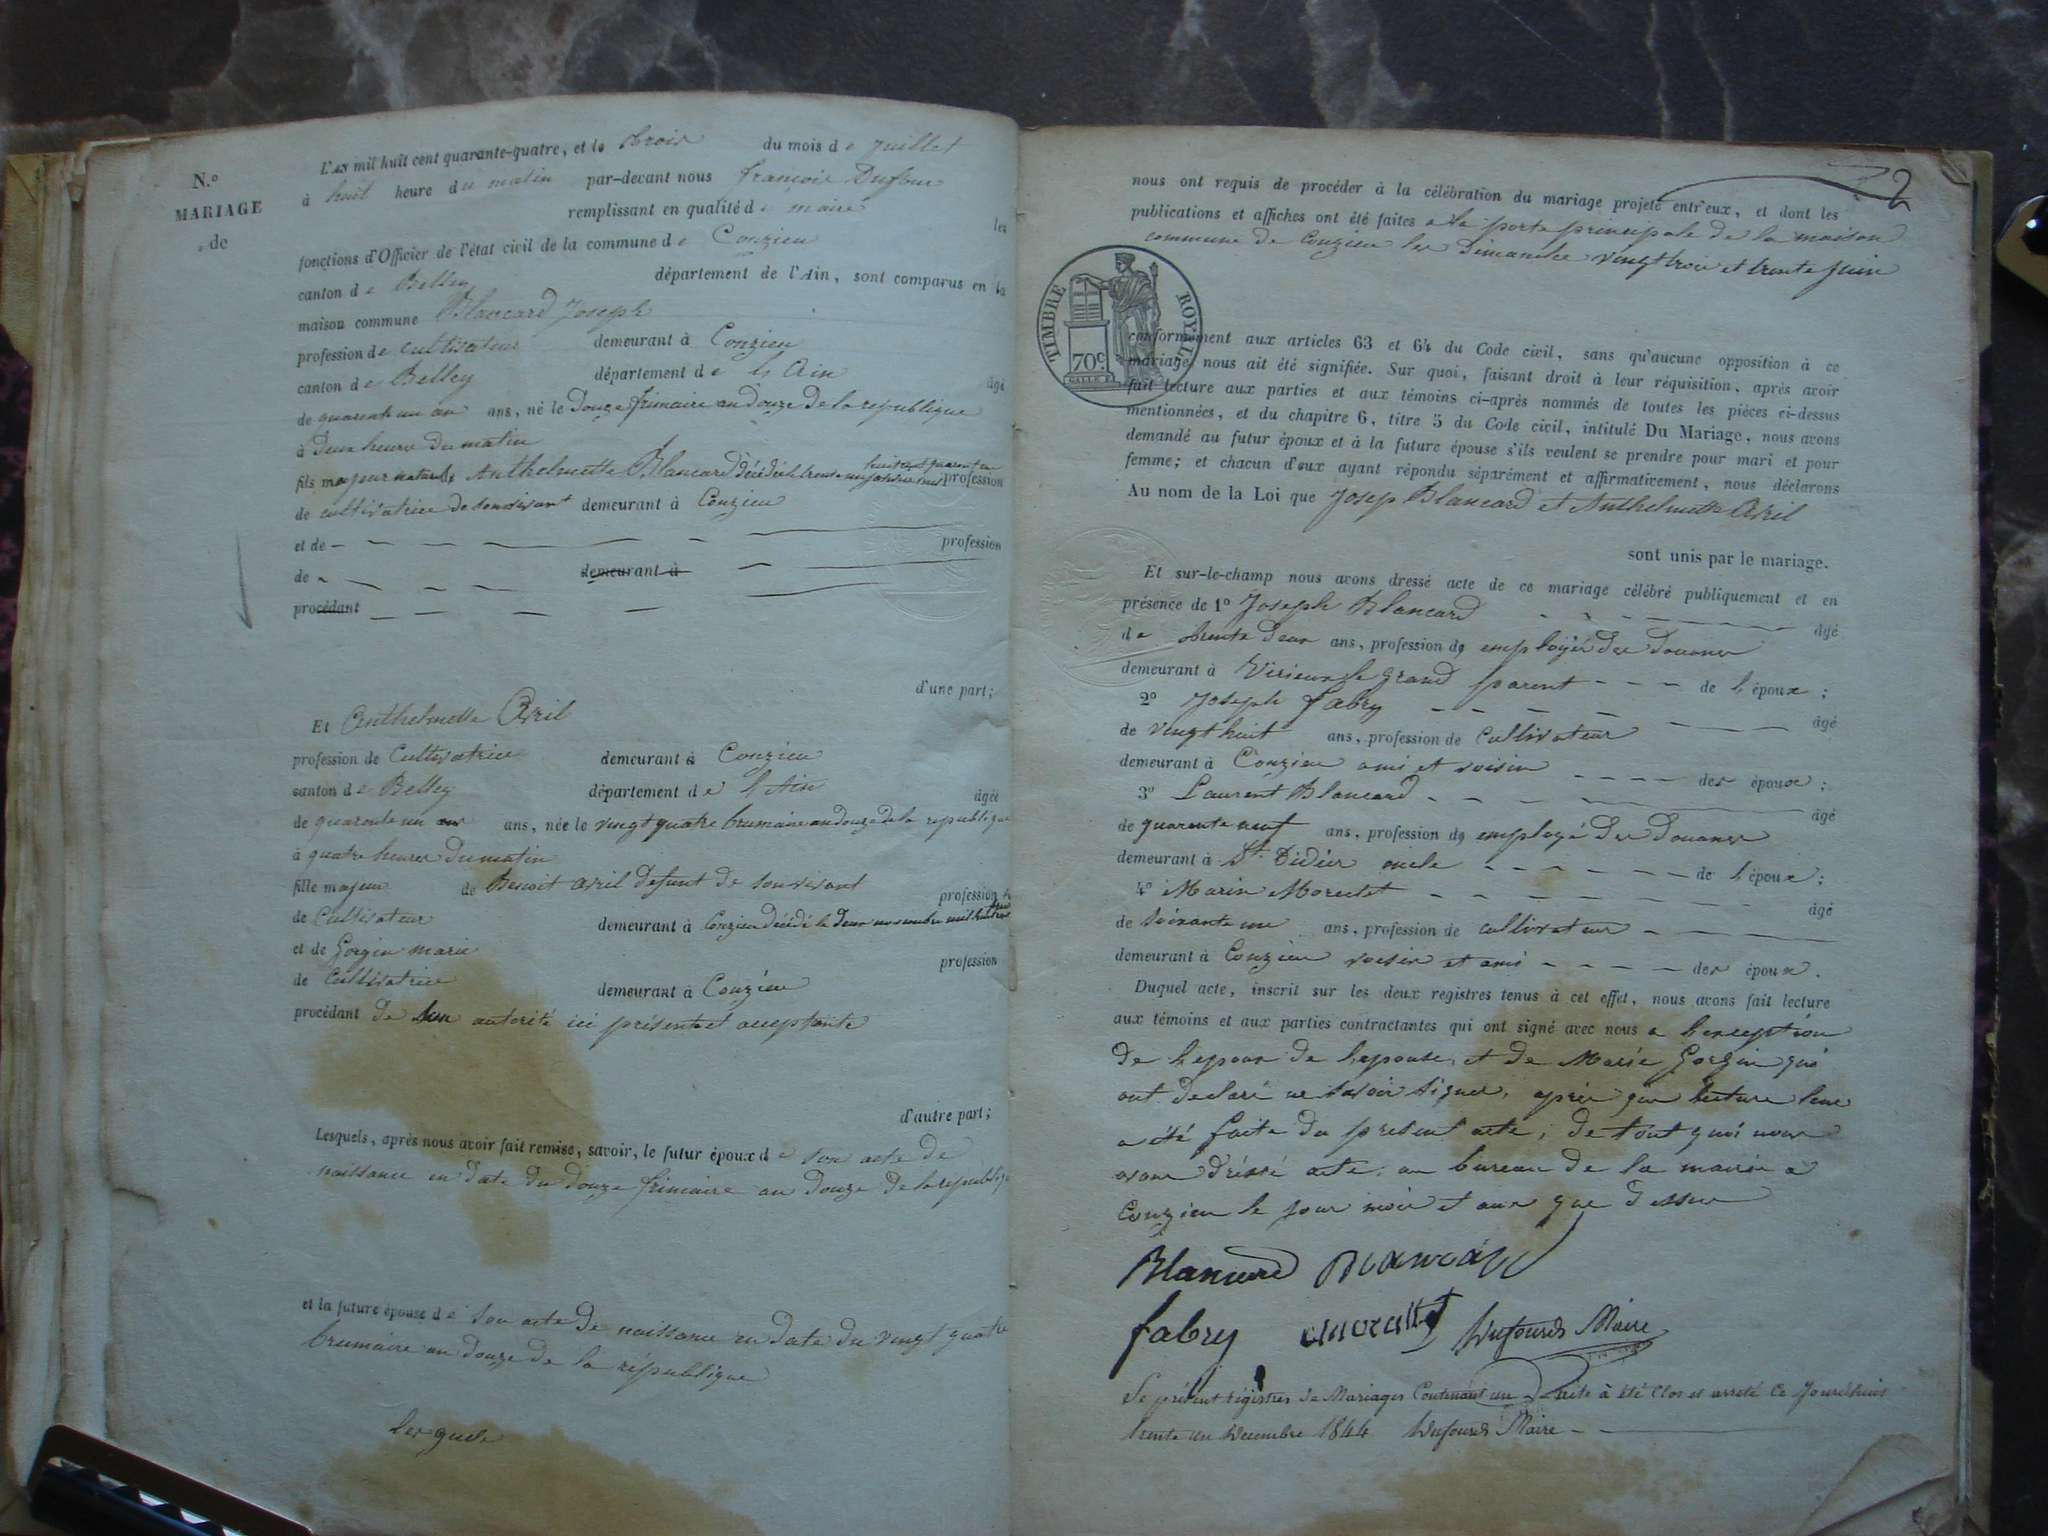 N.º
MARIAGE
de
L'AN mil huit cent quarante-quatre, et le trois du mois de juillet
à huit heure du matin par-devant nous françois Dufour
remplissant en qualité de maire les
fonctions d'Officier de l'état civil de la commune de Conzieu
canton de Belley département de l'Ain, sont comparus en la
maison commune Blancard Joseph
profession de cultivateur demeurant à Conzieu
canton de Belley département de l'Ain âgé
de quarente un an ans, né le Douze frimaire an douze de la republique
à deux heure du matin
fils majeur naturel de Anthelmette Blancard décédé le trente un janvier mil huit cent quarente un profession
de cultivatrice de son vivant demeurant à Conzieu
et de profession
de demeurant à
procédant
d'une part;
Et Anthelmette Avril
profession de Cultivatrice demeurant à Conzieu
canton de Belley département de l'Ain âgée
de quarente un ans ans, née le vingt quatre brumaire an douze de la republique
à quatre heures du matin
fille majeur de Benoit Avril defunt de son vivant profession
de Cultivateur demeurant à Conzieu décédé le deux novembre mil huit cent
et de Gorgin marie profession
de Cultivatrice demeurant à Conzieu
procédant de son autorité ici présente et acceptante
d'autre part;
Lesquels, après nous avoir fait remise, savoir, le futur époux de son acte de
naissance en date du douze frimaire an douze de la republique
et la future épouse de son acte de naissance en date du vingt quatre
brumaire an douze de la république
lesquels
2
nous ont requis de procéder à la célébration du mariage projeté entr'eux, et dont les
publications et affiches ont été faites a la porte principale de la maison
commune de Conzieu les Dimanche vingt trois et trente juin
TIMBRE ROYAL
70c
conformément aux articles 63 et 64 du Code civil, sans qu'aucune opposition à ce
mariage nous ait été signifiée. Sur quoi, faisant droit à leur réquisition, après avoir
fait lecture aux parties et aux témoins ci-après nommés de toutes les pièces ci-dessus
mentionnées, et du chapitre 6, titre 5 du Code civil, intitulé Du Mariage, nous avons
demandé au futur époux et à la future épouse s'ils veulent se prendre pour mari et pour
femme; et chacun d'eux ayant répondu séparément et affirmativement, nous déclarons
Au nom de la Loi que Josep Blancard et Anthelmette Avril
sont unis par le mariage.
Et sur-le-champ nous avons dressé acte de ce mariage célébré publiquement et en
présence de 1º Joseph Blancard âgé
de trente deux ans, profession de employé des Douanes
demeurant à Virieux le Grand parent de l'époux;
2º Joseph fabry âgé
de vingt huit ans, profession de Cultivateur
demeurant à Conzieu ami et voisin des époux;
3º Laurent Blancard âgé
de quarente neuf ans, profession de employé des Douanes
demeurant à St. Didier oncle de l'époux;
4º Marin Morectet âgé
de soixante un ans, profession de cultivateur
demeurant à Conzieu voisin et ami des époux.
Duquel acte, inscrit sur les deux registres tenus à cet effet, nous avons fait lecture
aux témoins et aux parties contractantes qui ont signé avec nous a l'exception
de l'epoux de l'epouse, et de Marie Gorgin qui
ont declaré ne savoir signer, après que lecture leur
a été faite du present acte, de tout quoi nous
avons dréssé acte, au bureau de la mairie a
Conzieu le jour mois et an que dessus
Blancard Blancard
fabry Dufour Maire
Le présent régistres de Mariages Contenant un acte à été Clos et arreté Ce Jourdhuis
trente un Decembre 1844 Dufour Maire